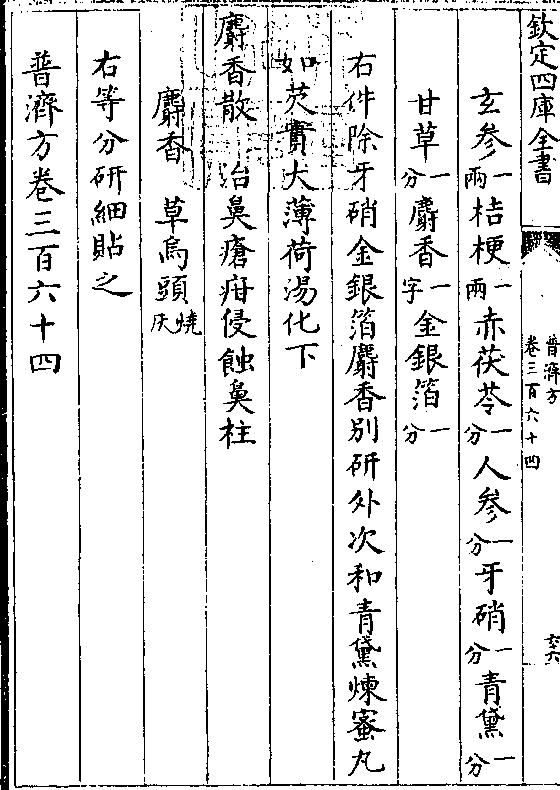 欽定四庫全書
普濟方
卷三百六十四
玄參一兩桔梗一兩赤茯苓一分人參一分牙硝一分青黛一分
甘草一分麝香一字金銀箔一分
右件除牙硝金銀箔麝香別研外次和青黛煉蜜丸
如芡實大薄荷湯化下
麝香散　治鼻瘡疳侵蝕鼻柱
麝香　草烏頭燒灰
右等分研細貼之
普濟方卷三百六十四